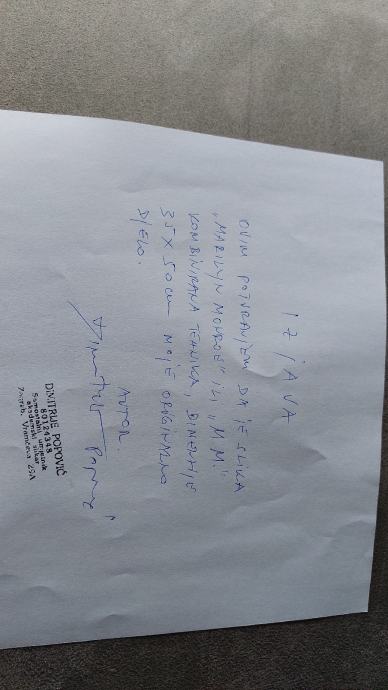 IZJAVA
OVIM POTVRĐUJEM DA JE SLIKA
„MARILYN MONROE" ILI „M.M."
KOMBINIRANA TEHNIKA, DIMENZIJE
35 X 50 cm MOJE ORIGINALNO
DJELO.
AUTOR.
Dimitrije Popović
DIMITRIJE POPOVIĆ
80124348
Samostalni umjetnik
akademski slikar
Zagreb, Vramčeva 25A